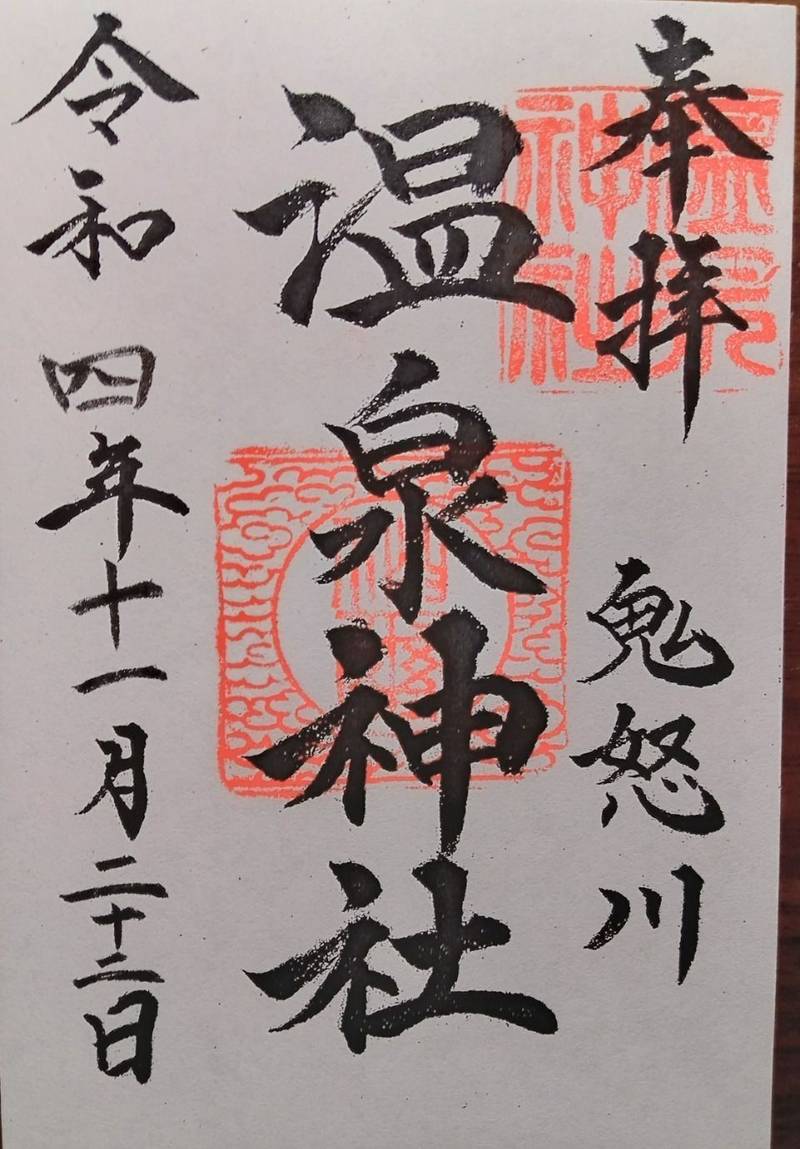 奉拝
鬼怒川
温泉神社
令和四年十一月二十二日
温泉
神社